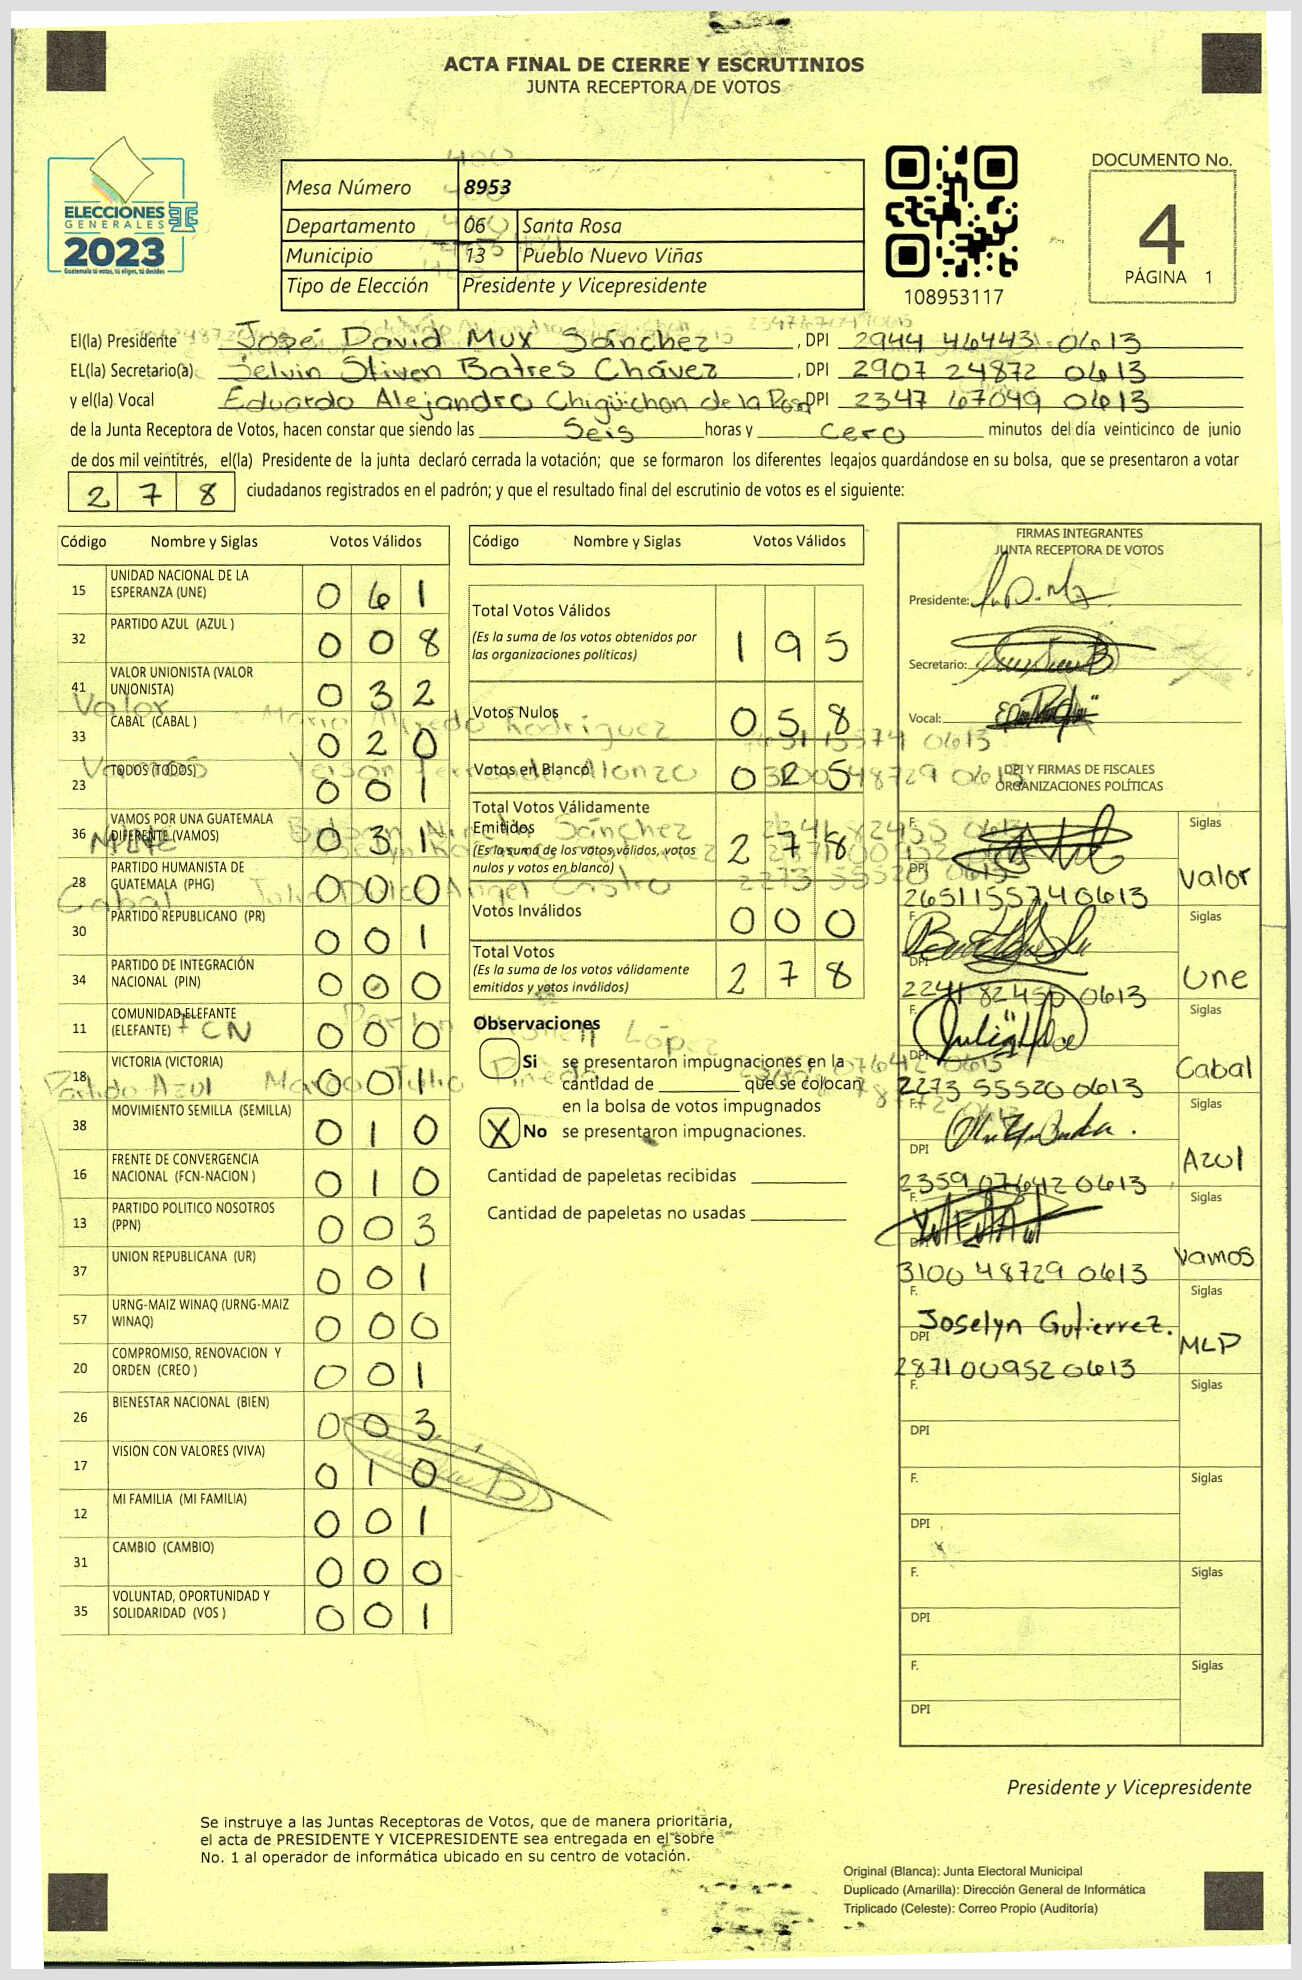 ACTA FINAL DE CIERRE Y ESCRUTINIOS
JUNTA RECEPTORA DE VOTOS
ELECCIONES
GENERALES
2023
Guatemala tú votas, tú eliges, tú decides
Mesa Número 8953
Departamento 06 Santa Rosa
Municipio 13 Pueblo Nuevo Viñas
Tipo de Elección Presidente y Vicepresidente
108953117
DOCUMENTO No.
4
PÁGINA 1
El(la) Presidente José David Mux Sánchez, DPI 2944 46443 0613
EL(la) Secretario(a) Selvin Stiven Batres Chávez, DPI 2907 24872 0613
y el(la) Vocal Eduardo Alejandro Chigüichon de la Rosa DPI 2347 67049 0613
de la Junta Receptora de Votos, hacen constar que siendo las Seis horas y cero minutos del día veinticinco de junio
de dos mil veintitrés, el(la) Presidente de la junta declaró cerrada la votación; que se formaron los diferentes legajos quardándose en su bolsa, que se presentaron a votar
278 ciudadanos registrados en el padrón; y que el resultado final del escrutinio de votos es el siguiente:
Código Nombre y Siglas Votos Válidos
15 UNIDAD NACIONAL DE LA ESPERANZA (UNE) 061
32 PARTIDO AZUL (AZUL ) 008
41 VALOR UNIONISTA (VALOR UNIONISTA) 032
33 CABAL (CABAL ) 020
23 TODOS (TODOS) 001
36 VAMOS POR UNA GUATEMALA DIFERENTE (VAMOS) 031
28 PARTIDO HUMANISTA DE GUATEMALA (PHG) 000
30 PARTIDO REPUBLICANO (PR) 001
34 PARTIDO DE INTEGRACIÓN NACIONAL (PIN) 000
11 COMUNIDAD ELEFANTE (ELEFANTE) 000
18 VICTORIA (VICTORIA) 001
38 MOVIMIENTO SEMILLA (SEMILLA) 010
16 FRENTE DE CONVERGENCIA NACIONAL (FCN-NACION ) 010
13 PARTIDO POLITICO NOSOTROS (PPN) 003
37 UNION REPUBLICANA (UR) 001
57 URNG-MAIZ WINAQ (URNG-MAIZ WINAQ) 000
20 COMPROMISO, RENOVACION Y ORDEN (CREO ) 001
26 BIENESTAR NACIONAL (BIEN) 003
17 VISION CON VALORES (VIVA) 010
12 MI FAMILIA (MI FAMILIA) 001
31 CAMBIO (CAMBIO) 000
35 VOLUNTAD, OPORTUNIDAD Y SOLIDARIDAD (VOS ) 001
Código Nombre y Siglas Votos Válidos
Total Votos Válidos 195
(Es la suma de los votos obtenidos por
las organizaciones políticas)
Votos Nulos 058
Votos en Blanco 025
Total Votos Válidamente
Emitidos 278
(Es la suma de los votos válidos, votos
nulos y votos en blanco)
Votos Inválidos 000
Total Votos 278
(Es la suma de los votos válidamente
emitidos y votos inválidos)
Observaciones
Si se presentaron impugnaciones en la
cantidad de ________ que se colocan
en la bolsa de votos impugnados
X No se presentaron impugnaciones.
Cantidad de papeletas recibidas
Cantidad de papeletas no usadas
FIRMAS INTEGRANTES
JUNTA RECEPTORA DE VOTOS
Presidente:
Secretario:
Vocal:
DPI Y FIRMAS DE FISCALES
ORGANIZACIONES POLÍTICAS
F. Siglas
DPI 265115574 0613 Valor
F. Siglas
DPI 2241 82455 0613 Une
F. Siglas
DPI 2273 55520 0613 Cabal
F. Siglas
DPI 2359 07642 0613 Azul
F. Siglas
DPI 3100 48729 0613 Vamos
F. Joselyn Gutierrez. Siglas
DPI 2871 00952 0613 MLP
F. Siglas
DPI
F. Siglas
DPI
F. Siglas
DPI
F. Siglas
DPI
Presidente y Vicepresidente
Se instruye a las Juntas Receptoras de Votos, que de manera prioritaria,
el acta de PRESIDENTE Y VICEPRESIDENTE sea entregada en el sobre
No. 1 al operador de informática ubicado en su centro de votación.
Original (Blanca): Junta Electoral Municipal
Duplicado (Amarilla): Dirección General de Informática
Triplicado (Celeste): Correo Propio (Auditoría)